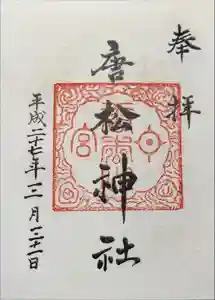 奉拝
唐松神社
平成二十七年十二月三十一日